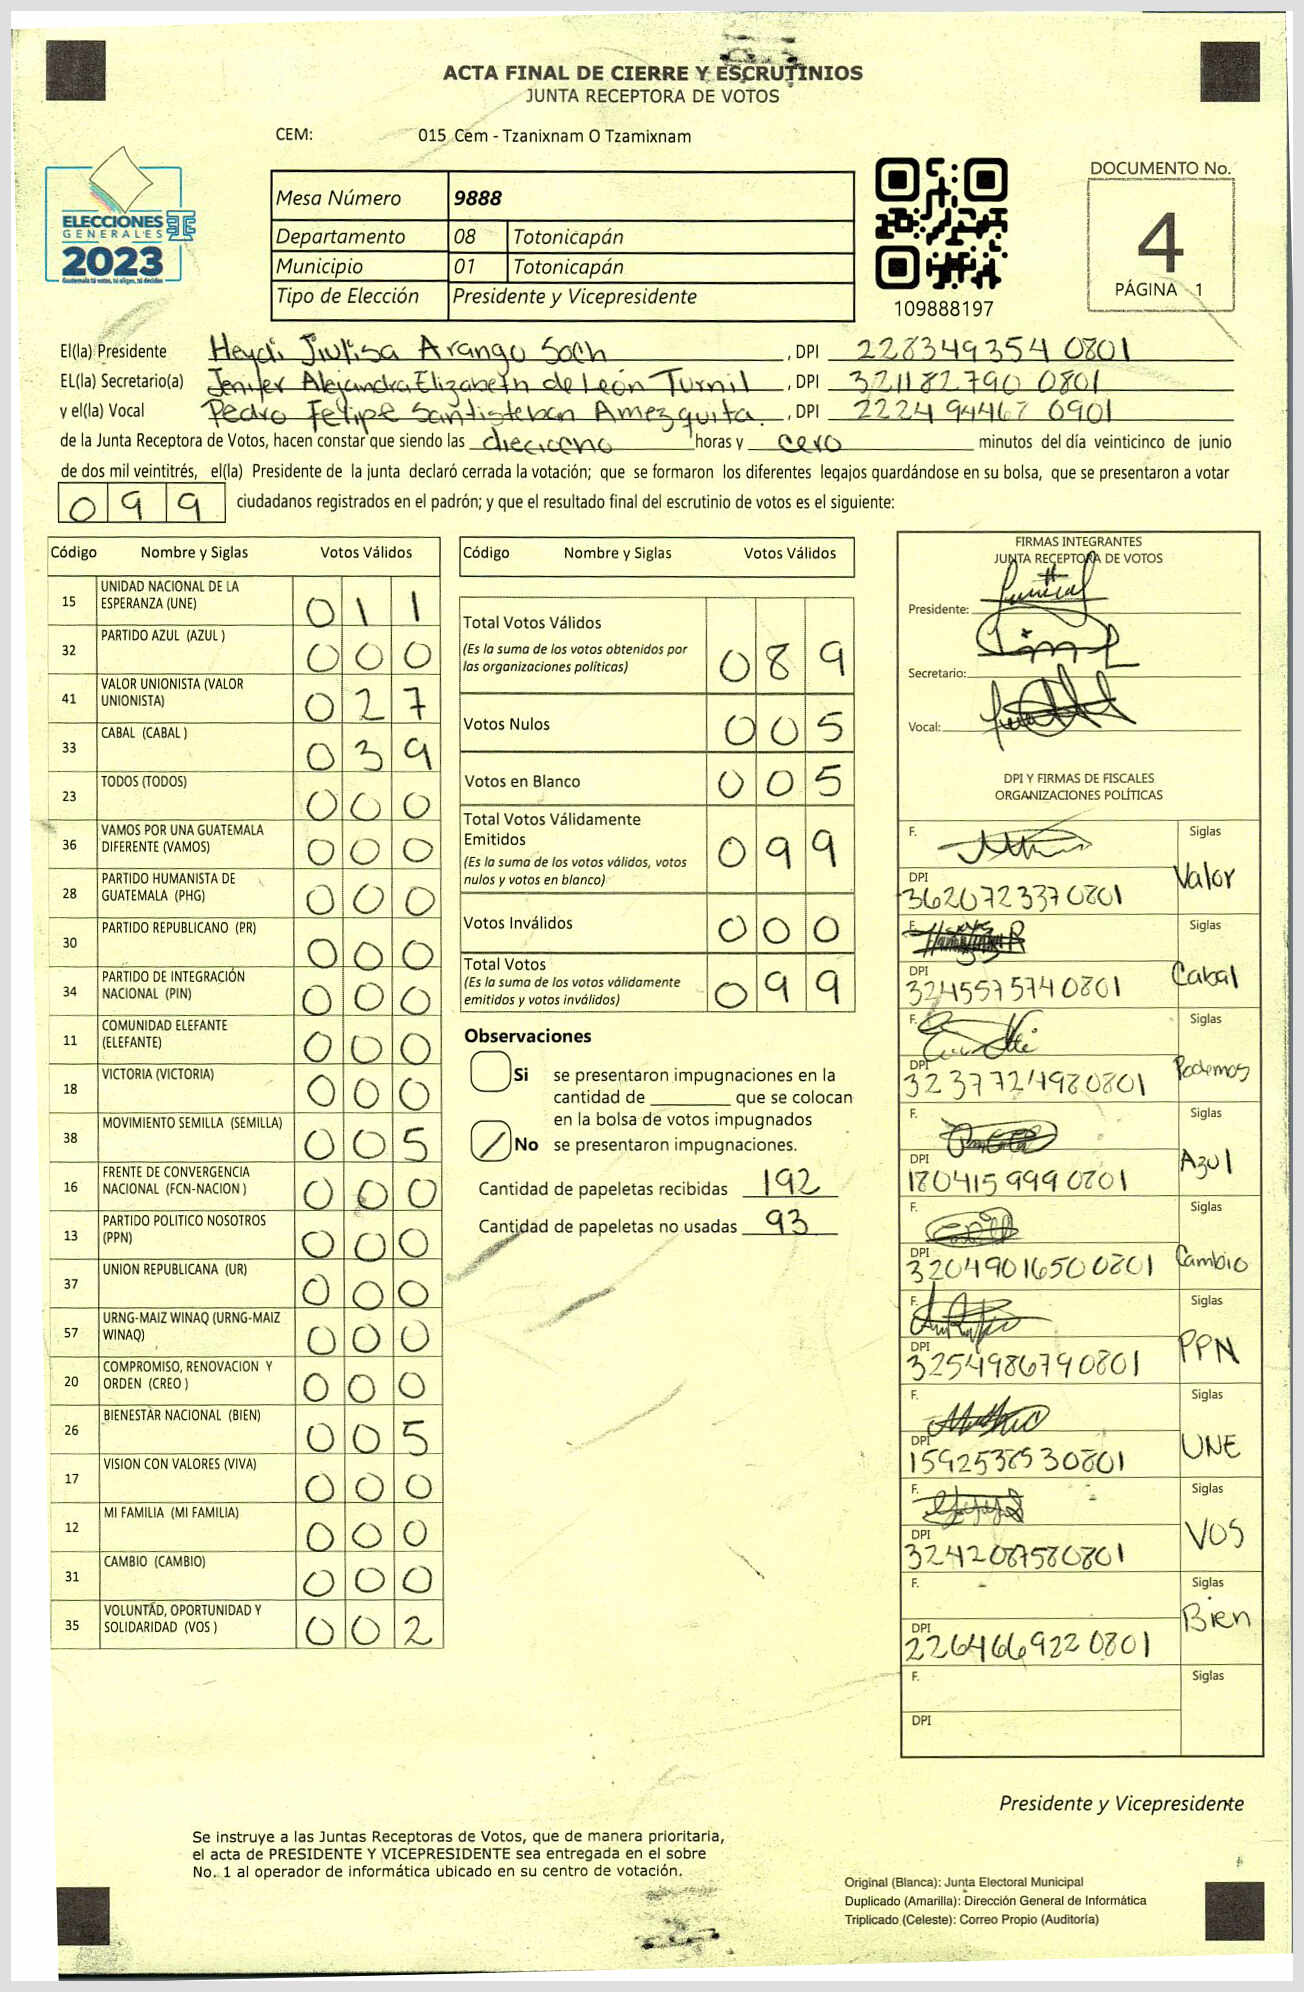 ACTA FINAL DE CIERRE Y ESCRUTINIOS
JUNTA RECEPTORA DE VOTOS
CEM: 015 Cem - Tzanixnam O Tzamixnam
ELECCIONES
GENERALES
2023
Guatemala tú votas, tú eliges, tú decides
Mesa Número 9888
Departamento 08 Totonicapán
Municipio 01 Totonicapán
Tipo de Elección Presidente y Vicepresidente
109888197
DOCUMENTO No.
4
PÁGINA 1
El(la) Presidente Heydi Jiulisa Arango Soch , DPI 228349354 0801
EL(la) Secretario(a) Jenifer Alejandra Elizabeth de León Turnil , DPI 321182790 0801
y el(la) Vocal Pedro Felipe Santisteban Amezquita. , DPI 222494467 0901
de la Junta Receptora de Votos, hacen constar que siendo las dieciocho horas y cero minutos del día veinticinco de junio
de dos mil veintitrés, el(la) Presidente de la junta declaró cerrada la votación; que se formaron los diferentes legajos guardándose en su bolsa, que se presentaron a votar
099 ciudadanos registrados en el padrón; y que el resultado final del escrutinio de votos es el siguiente:
Código Nombre y Siglas Votos Válidos
15 UNIDAD NACIONAL DE LA ESPERANZA (UNE) 011
32 PARTIDO AZUL (AZUL ) 000
41 VALOR UNIONISTA (VALOR UNIONISTA) 027
33 CABAL (CABAL ) 039
23 TODOS (TODOS) 000
36 VAMOS POR UNA GUATEMALA DIFERENTE (VAMOS) 000
28 PARTIDO HUMANISTA DE GUATEMALA (PHG) 000
30 PARTIDO REPUBLICANO (PR) 000
34 PARTIDO DE INTEGRACIÓN NACIONAL (PIN) 000
11 COMUNIDAD ELEFANTE (ELEFANTE) 000
18 VICTORIA (VICTORIA) 000
38 MOVIMIENTO SEMILLA (SEMILLA) 005
16 FRENTE DE CONVERGENCIA NACIONAL (FCN-NACION ) 000
13 PARTIDO POLITICO NOSOTROS (PPN) 000
37 UNION REPUBLICANA (UR) 000
57 URNG-MAIZ WINAQ (URNG-MAIZ WINAQ) 000
20 COMPROMISO, RENOVACION Y ORDEN (CREO ) 000
26 BIENESTAR NACIONAL (BIEN) 005
17 VISION CON VALORES (VIVA) 000
12 MI FAMILIA (MI FAMILIA) 000
31 CAMBIO (CAMBIO) 000
35 VOLUNTAD, OPORTUNIDAD Y SOLIDARIDAD (VOS ) 002
Código Nombre y Siglas Votos Válidos
Total Votos Válidos 089
(Es la suma de los votos obtenidos por
las organizaciones políticas)
Votos Nulos 005
Votos en Blanco 005
Total Votos Válidamente
Emitidos 099
(Es la suma de los votos válidos, votos
nulos y votos en blanco)
Votos Inválidos 000
Total Votos 099
(Es la suma de los votos válidamente
emitidos y votos inválidos)
Observaciones
Si se presentaron impugnaciones en la
cantidad de ________ que se colocan
en la bolsa de votos impugnados
No se presentaron impugnaciones.
Cantidad de papeletas recibidas 192
Cantidad de papeletas no usadas 93
FIRMAS INTEGRANTES
JUNTA RECEPTORA DE VOTOS
Presidente:
Secretario:
Vocal:
DPI Y FIRMAS DE FISCALES
ORGANIZACIONES POLÍTICAS
F. Siglas Valor
DPI 3620723370801
F. Siglas Cabal
DPI 3245575740801
F. Siglas Podemos
DPI 3237724980801
F. Siglas Azul
DPI 1804159990801
F. Siglas Cambio
DPI 32049016500801
F. Siglas PPN
DPI 3254986790801
F. Siglas UNE
DPI 1592538530801
F. Siglas VOS
DPI 3242087580801
F. Siglas Bien
DPI 2264669220801
F. Siglas
DPI
Presidente y Vicepresidente
Se instruye a las Juntas Receptoras de Votos, que de manera prioritaria,
el acta de PRESIDENTE Y VICEPRESIDENTE sea entregada en el sobre
No. 1 al operador de informática ubicado en su centro de votación.
Original (Blanca): Junta Electoral Municipal
Duplicado (Amarilla): Dirección General de Informática
Triplicado (Celeste): Correo Propio (Auditoría)